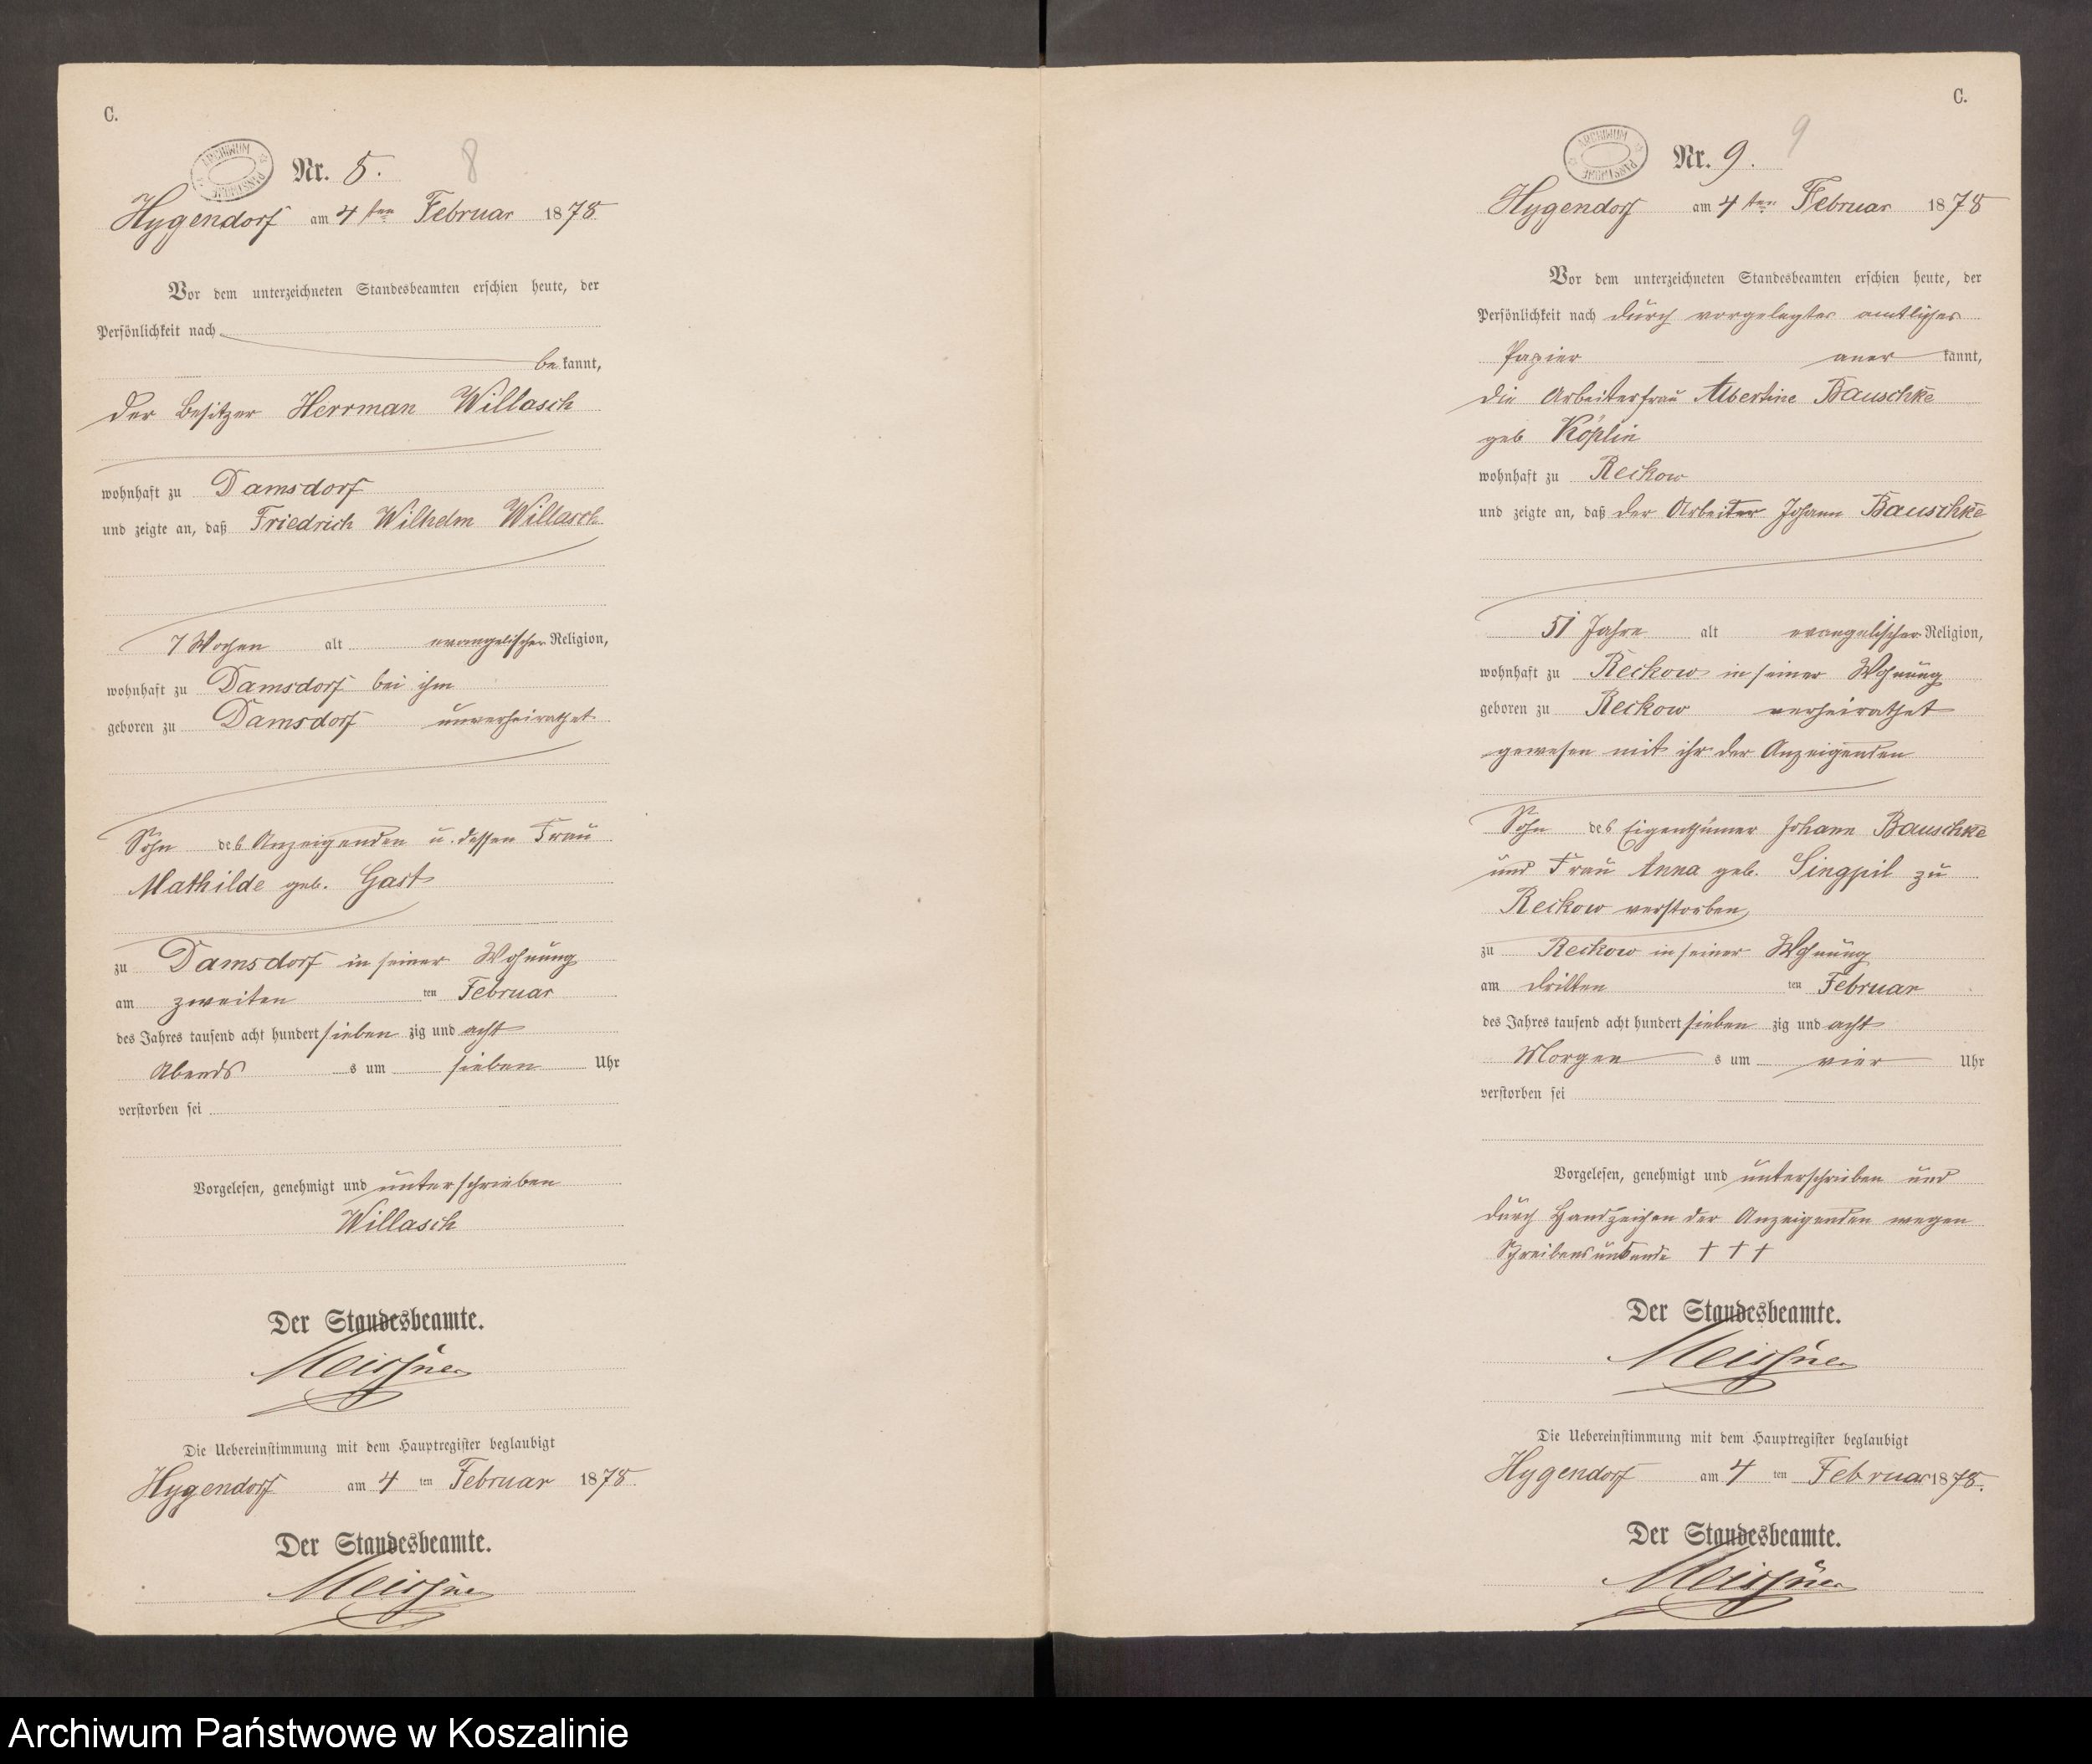 C.
ARCHIWUM PAŃSTWOWE
Nr. 8.
8
Hygendorf am 4 ten Februar 1878
Vor dem unterzeichneten Standesbeamten erschien heute, der
Persönlichkeit nach
be kannt,
der Besitzer Herrman Willasch
wohnhaft zu Damsdorf
und zeigte an, daß Friedrich Wilhelm Willasch
7 Wochen alt evangelischer Religion,
wohnhaft zu Damsdorf bei ihm
geboren zu Damsdorf unverheirathet
Sohn des Anzeigenden u. dessen Frau
Mathilde geb. Gast
zu Damsdorf in seiner Wohnung
am zweiten ten Februar
des Jahres tausend acht hundert sieben zig und acht
Abends s um sieben Uhr
verstorben sei
Vorgelesen, genehmigt und unterschrieben
Willasch
Der Standesbeamte.
Meissner
Die Uebereinstimmung mit dem Hauptregister beglaubigt
Hygendorf am 4 ten Februar 1878.
Der Standesbeamte.
Meissner
C.
ARCHIWUM PAŃSTWOWE
Nr. 9.
9
Hygendorf am 4 ten Februar 1878
Vor dem unterzeichneten Standesbeamten erschien heute, der
Persönlichkeit nach durch vorgelegtes amtliches
Papier aner kannt,
die Arbeiterfrau Albertine Bauschke
geb Köplin
wohnhaft zu Reckow
und zeigte an, daß der Arbeiter Johann Bauschke
51 Jahre alt evangelischer Religion,
wohnhaft zu Reckow in seiner Wohnung
geboren zu Reckow verheirathet
gewesen mit ihr der Anzeigenden
Sohn des Eigenthümer Johann Bauschke
und Frau Anna geb. Singpil zu
Reckow verstorben,
zu Reckow in seiner Wohnung
am dritten ten Februar
des Jahres tausend acht hundert sieben zig und acht
Morgen s um vier Uhr
verstorben sei
Vorgelesen, genehmigt und unterschrieben und
durch Handzeichen der Anzeigenden wegen
Schreibensunkunde † † †
Der Standesbeamte.
Meissner
Die Uebereinstimmung mit dem Hauptregister beglaubigt
Hygendorf am 4 ten Februar 1878.
Der Standesbeamte.
Meissner
Archiwum Państwowe w Koszalinie